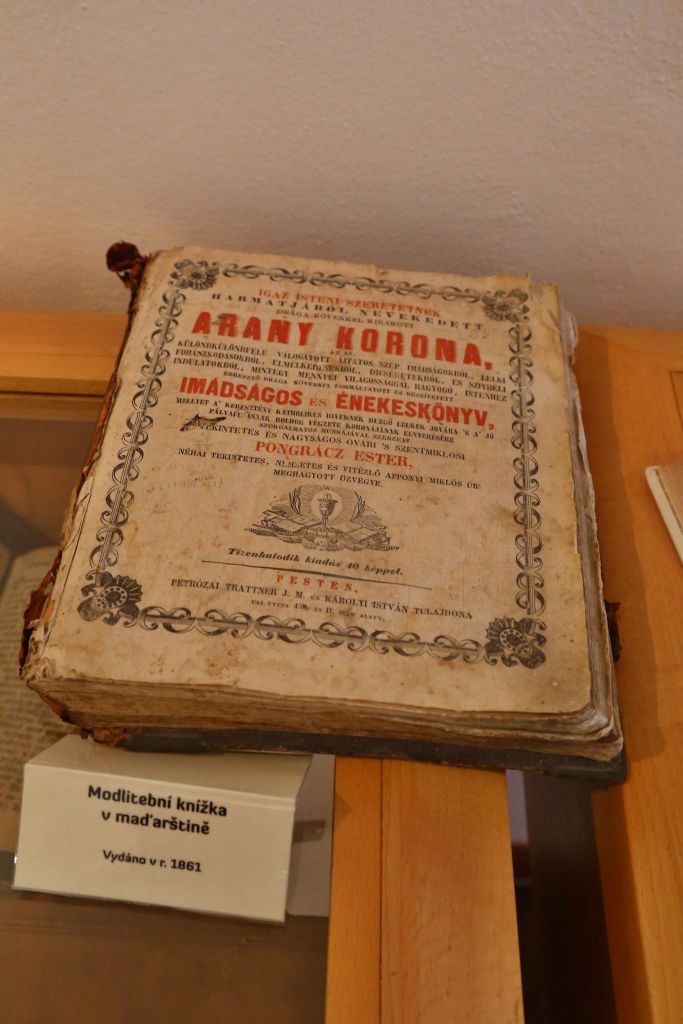 IGAZ ISTENI SZERETETNEK
HARMATJÁBÓL NEVEKEDETT,
DRÁGA KÖVEKKEL KIRAKOTT
ARANY KORONA,
AZ AZ:
KÜLÖNBKÜLÖNBFÉLE VÁLOGATOTT ÁJTATOS SZÉP IMÁDSÁGOKBÓL, LELKI
FOHÁSZKODÁSOKBÓL, ELMÉLKEDÉSEKBŐL, DICSÉRETEKBŐL, ÉS SZIVBELI
INDULATOKBÓL, MINTEGY MENNYEI VILÁGOSSÁGGAL RAGYOGÓ, ISTENHEZ
ÉBRESZTŐ DRÁGA KÖVEKKEL FORMÁLTATOTT ÉS KÉSZITETETT
IMÁDSÁGOS ÉS ÉNEKESKÖNYV,
MELLYET A' KERESZTÉNY KATHOLIKUS HIVEKNEK BUZGÓ LELKEK JOVÁRA 'S A' JÓ
PÁLYAFUTÁSNAK BOLDOG VÉGZETE KORONÁJÁNAK ELNYERÉSÉRE
SZORGALMATOS MUNKÁJÁVAL SZERZETT
TEKINTETES ÉS NAGYSÁGOS ÓVÁRI 'S SZENTMIKLÓSI
PONGRÁCZ ESTER,
NÉHAI TEKINTETES, NEMZETES ÉS VITÉZLŐ APPONYI MIKLÓS ÚR
MEGHAGYOTT ÖZVEGYE.
Tizenhatodik kiadás 40 képpel.
PESTEN,
PETRÓZAI TRATTNER J. M. és KÁROLYI ISTVÁN TULAJDONA
URI UTCZA
SZÁM ALATT.
Modlitební knížka
v maďarštině
Vydáno v r. 1861